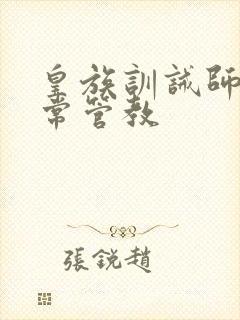 皇族訓誡師
常管教
張銳趙